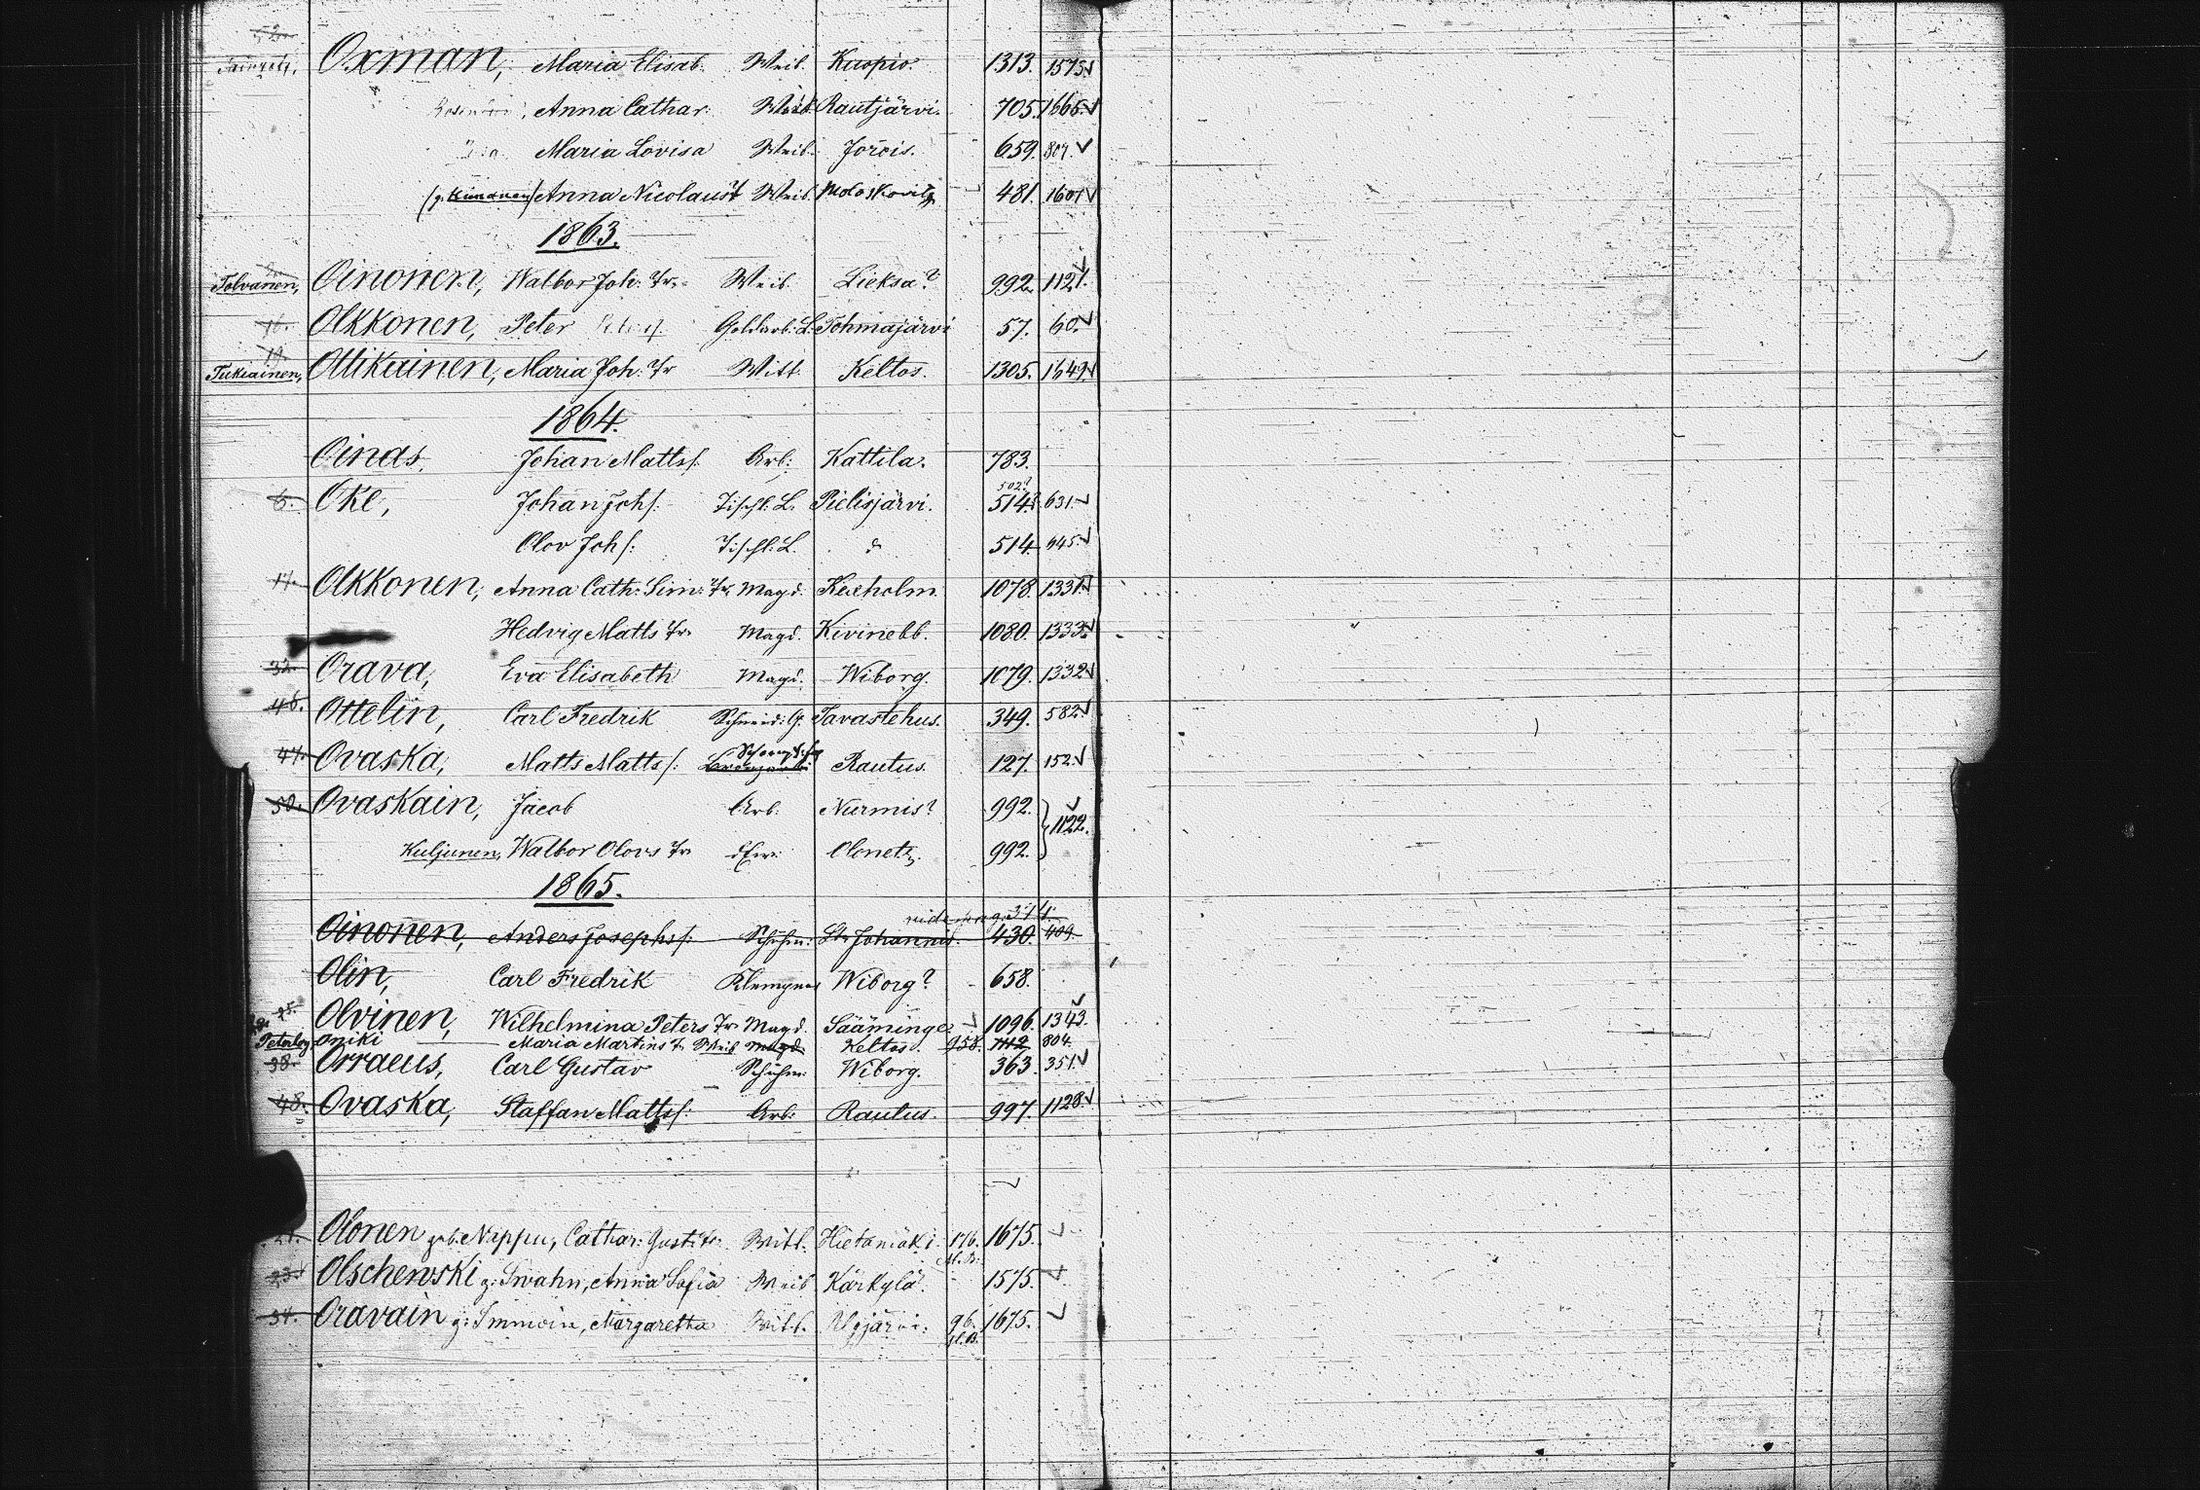 Oxman, Maria Elisab. Weib. Kuopio. 1313. 1573.
Anna Cathar: Weib. Rautjärvi. 705. 1665.
Maria Lovisa Weib. Jorois. 659. 807.
Anna Nicolaus Tr Weib. 481. 1601
1863.
Tolvanen, Oinonen, Walbor Joh: Tr. Weib. Lieksa? 992. 1121.
16. Olkkonen, Peter Goldarb: L. Tohmajärvi 57. 60.
19.
Tukiainen, Ollikainen, Maria Joh: Tr Witt. Keltos. 1305. 1649.
1864.
Oinas, Johan Mattsf. Arb: Kattila. 783.
502?
6. Oke, Johan Johf. Tischl: L. Pielisjärvi. 514? 631.
Olov Johf: Tischl: L. d 514. 645.
17. Olkkonen, Anna Cath: Sim: Tr. Magd. Kexholm. 1078. 1331.
Hedvig Matts Tr. Magd. Kivinebb. 1080. 1333.
32. Orava, Eva Elisabeth Magd. Wiborg. 1079. 1332
46. Ottelin, Carl Fredrik Schneid: G. Tavastehus. 349. 582.
47. Ovaska, Matts Mattsf: Rautus. 127. 152.
50. Ovaskain, Jacob Arb: Nurmis? 992. 1122.
Kuljunen, Walbor Olovs Tr Olonetz. 992.
1865.
vide pag. 374.
Oinonen, Anders Josephsf: Schuhm: St. Johannis. 430. 409.
Olin, Carl Fredrik Klempner Wiborg? 658.
25. Olvinen, Wilhelmina Peters Tr. Magd. Sääminge 1096. 1343.
Oniki Maria Martins T. Weib Magd. Keltos. 958. 1112 804.
38. Orraeus, Carl Gustav Schuhm: Wiborg. 363. 351.
48. Ovaska, Staffan Mattsf: Arb: Rautus. 997. 1128.
21. Olonen geb. Nappu, Cathar: Gust: tr. Witt. Hietamäki 176. 1675.
23. Olschewski g: Swahn, Anna Sofia Weib Kärkylä. 1575.
34. Oravain g: Immoin, Margaretha Witt. 96. 1675.